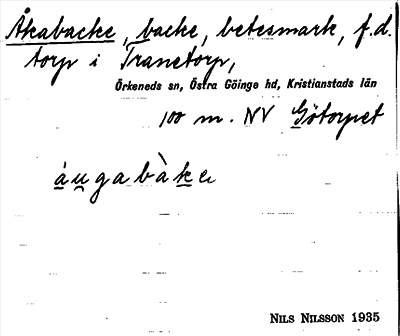 Åkabacke, backe, betesmark, f.d.
torp i Tranetorp,
Örkeneds sn, Östra Göinge hd, Kristianstads län
100 m. NV Götorpet
áu̯gabàke
NILS NILSSON 1935